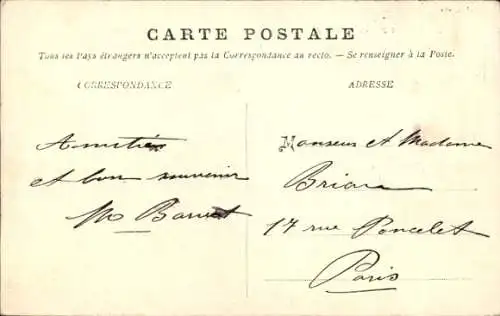 CARTE POSTALE
Tous les Pays étrangers n'acceptent pas la Correspondance au recto. — Se renseigner à la Poste.
CORRESPONDANCE
Amitiés
et bon souvenir
M Barret
ADRESSE
Monsieur et Madame
Brian
17 rue Poncelet
Paris